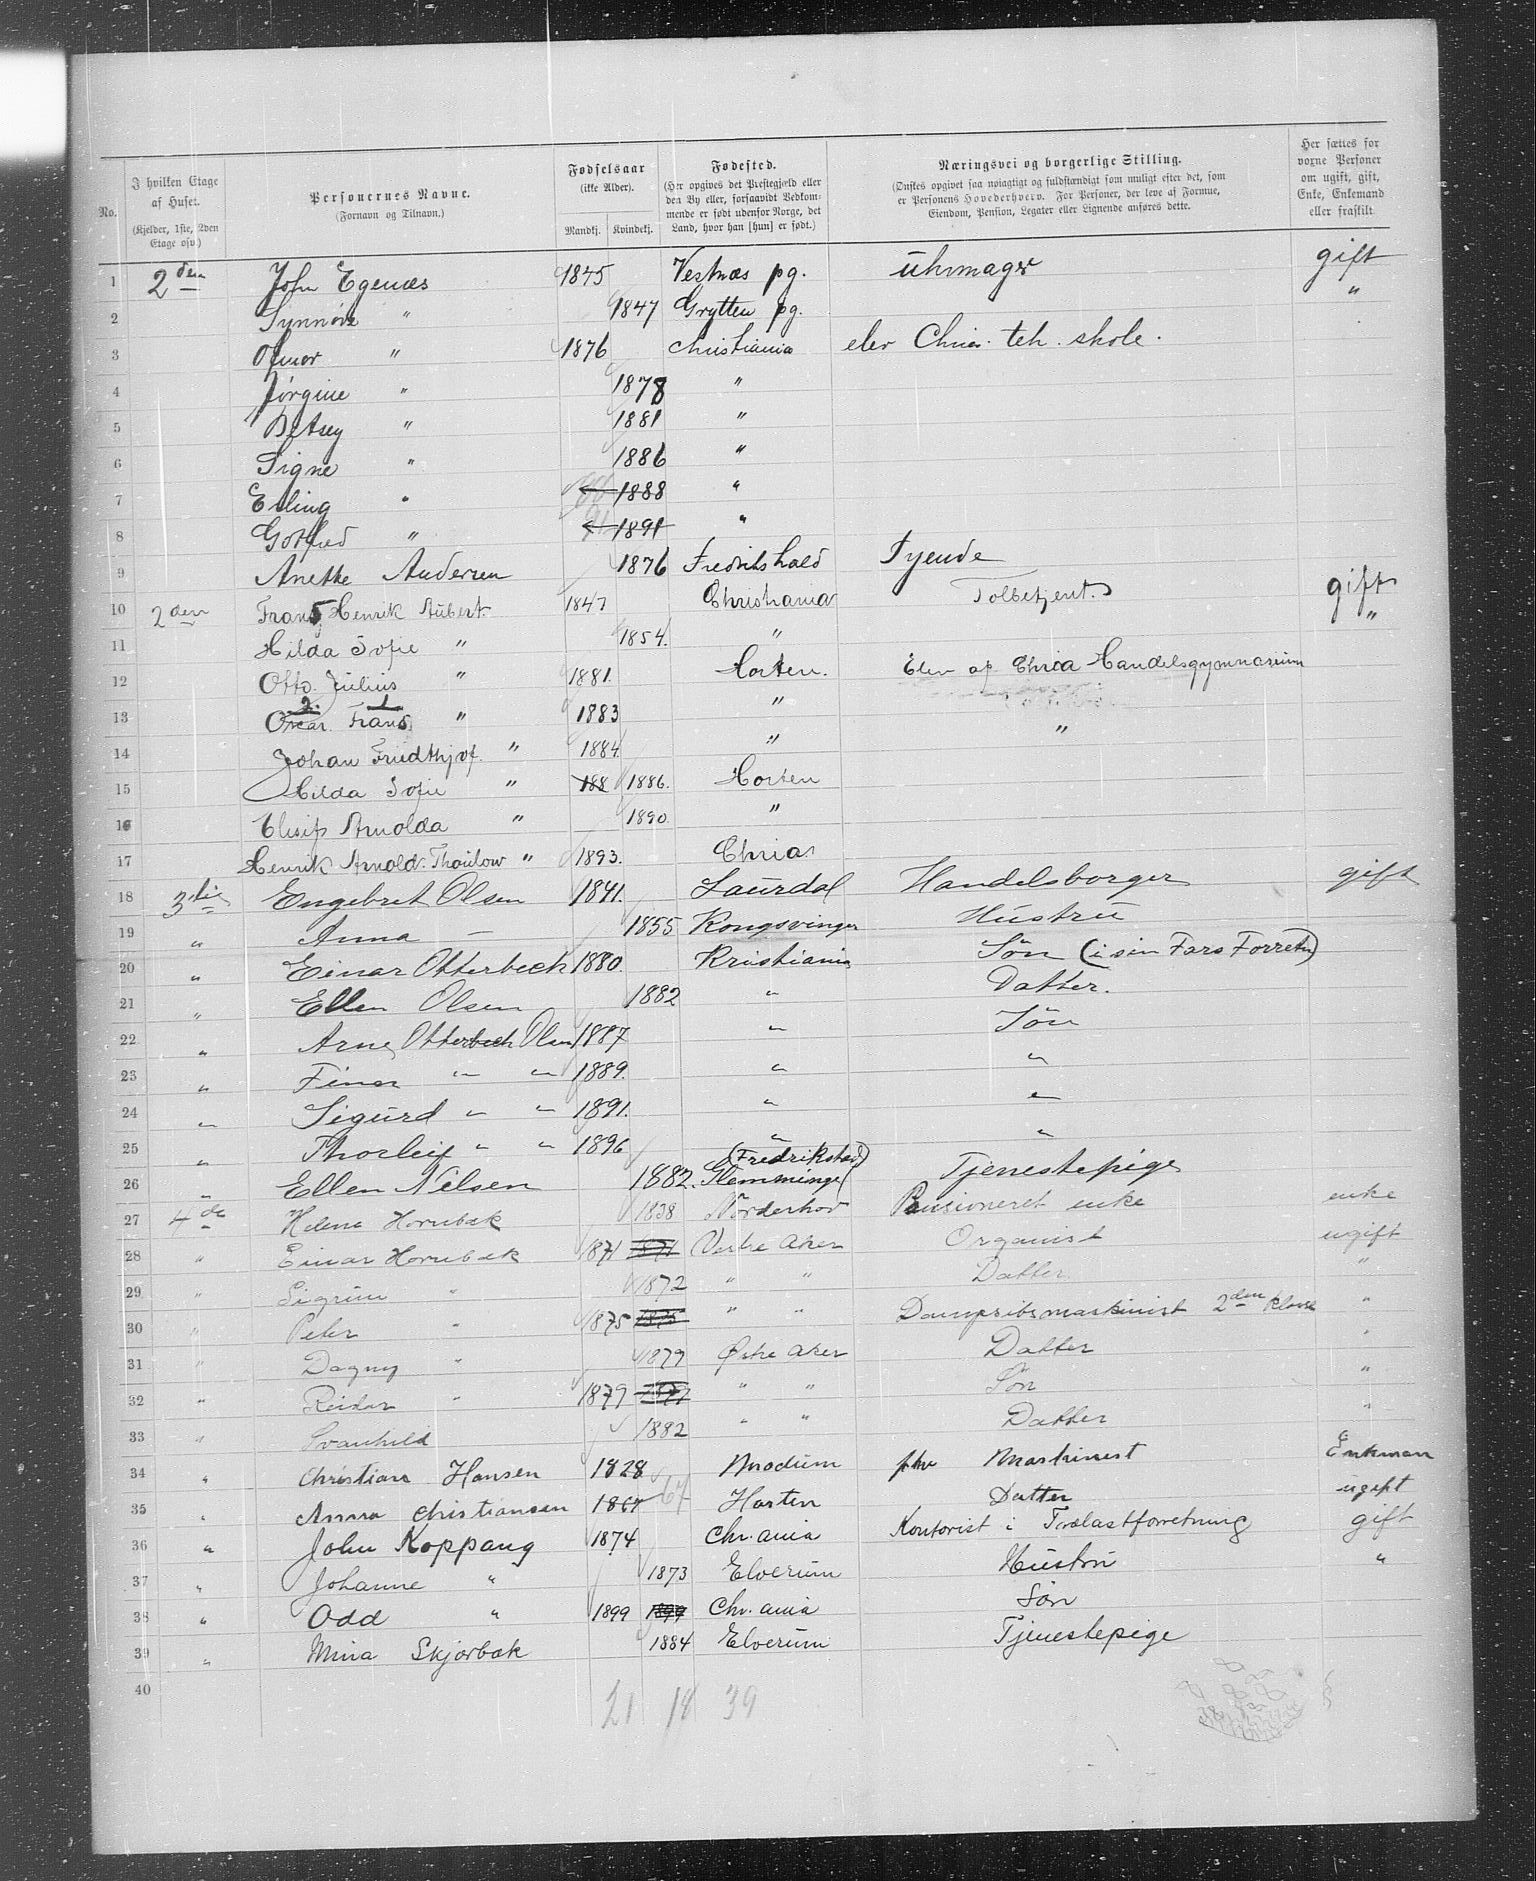 No.
I hvilken Etage af Huset. (Kjelder, 1ste, 2den Etage osv.)
Personernes Navne. (Fornavn og Tilnavn.)
Fødselsaar (ikke Alder). Mandkj. Kvindekj.
Fødested. (Her opgives det Prestegjæld eller den By eller, forsaavidt Vedkommende er født udenfor Norge, det Land, hvor han [hun] er født.)
Næringsvei og borgerlige Stilling. (Ønskes opgivet saa nøiagtigt og fuldstændigt som muligt efter det, som er Personens Hovederhverv. For Personer, der leve af Formue, Eiendom, Pension, Legater eller Lignende anføres dette.
Her sættes for voxne Personer om ugift, gift, Enke, Enkemand eller fraskilt
1 2den John Egenæs 1845 Vestnæs pg. uhrmager gift
2 Synnøve " 1847 Grytten pg. "
3 " 1876 Christiania elev Chria. teh. skole.
4 Jørgine " 1878 "
5 Betsey " 1881 "
6 Signe " 1886 "
7 Erling " 88 1888 "
8 Gotfred " 91 1891 "
9 Anethe Andersen 1876 Fredrikshald Tyende
10 2den Frans Henrik Aubert 1847 Christiania Toldbetjent. gift
11 Hilda Sofie " 1854. " "
12 Otto Julius " 1881. Horten. Elev af Chria Handelsgymnasium
13 2. 1 Oscar Frans " 1883 " "
14 Johan Fridthjof. " 1884. "
15 Hilda Sofie " 188 1886. Horten
16 Elisif Arnolda " 1890. "
17 Henrik Arnold Thaulow " 1893. Chria.
18 3die Engebret Olsen 1841. Laurdal Handelsborger gift
19 " Anna — 1855 Kongsvinger Hustru
20 " Einar Otterbech 1880. Kristiania Søn (i sin Fars Forretn)
21 " Ellen Olsen 1882 " Datter.
22 " Arne Otterbech Olsen 1887 " Søn
23 " Finn " " 1889. " "
24 " Sigurd " " 1891. " "
25 " Thorleif " " 1896 " "
26 " Ellen Nilsen 1882. (Fredrikstad) Glemminge Tjenestepige
27 4de Helene Hornbæk 1838 Norderhov Pensioneret enke enke
28 " Einar Hornbæk 1871 1871 Vestre Aker Organist ugift
29 " Sigrun " 1872 " " Datter "
30 " Peter " 1875 1875 " " Dampskibsmaskinist 2den klasse "
31 " Dagny " 1879 Østre Aker Datter "
32 " Reidar " 1879 1879 " " Søn "
33 " Svanhild 1882 " " Datter "
34 " Christian Hansen 1828 Modum Maskinist Enkman
35 " Anna Christiansen 1867 67 Horten Datter ugift
36 " John Koppang 1874 Chr.ania Kontorist i Trælastforretning gift
37 " Johanne " 1873 Elverum Hustru "
38 " Odd " 1899 1899 Chr.ania Søn
39 " Mina Skjørbæk 1884 Elverum Tjenestepige
40
21 18 39